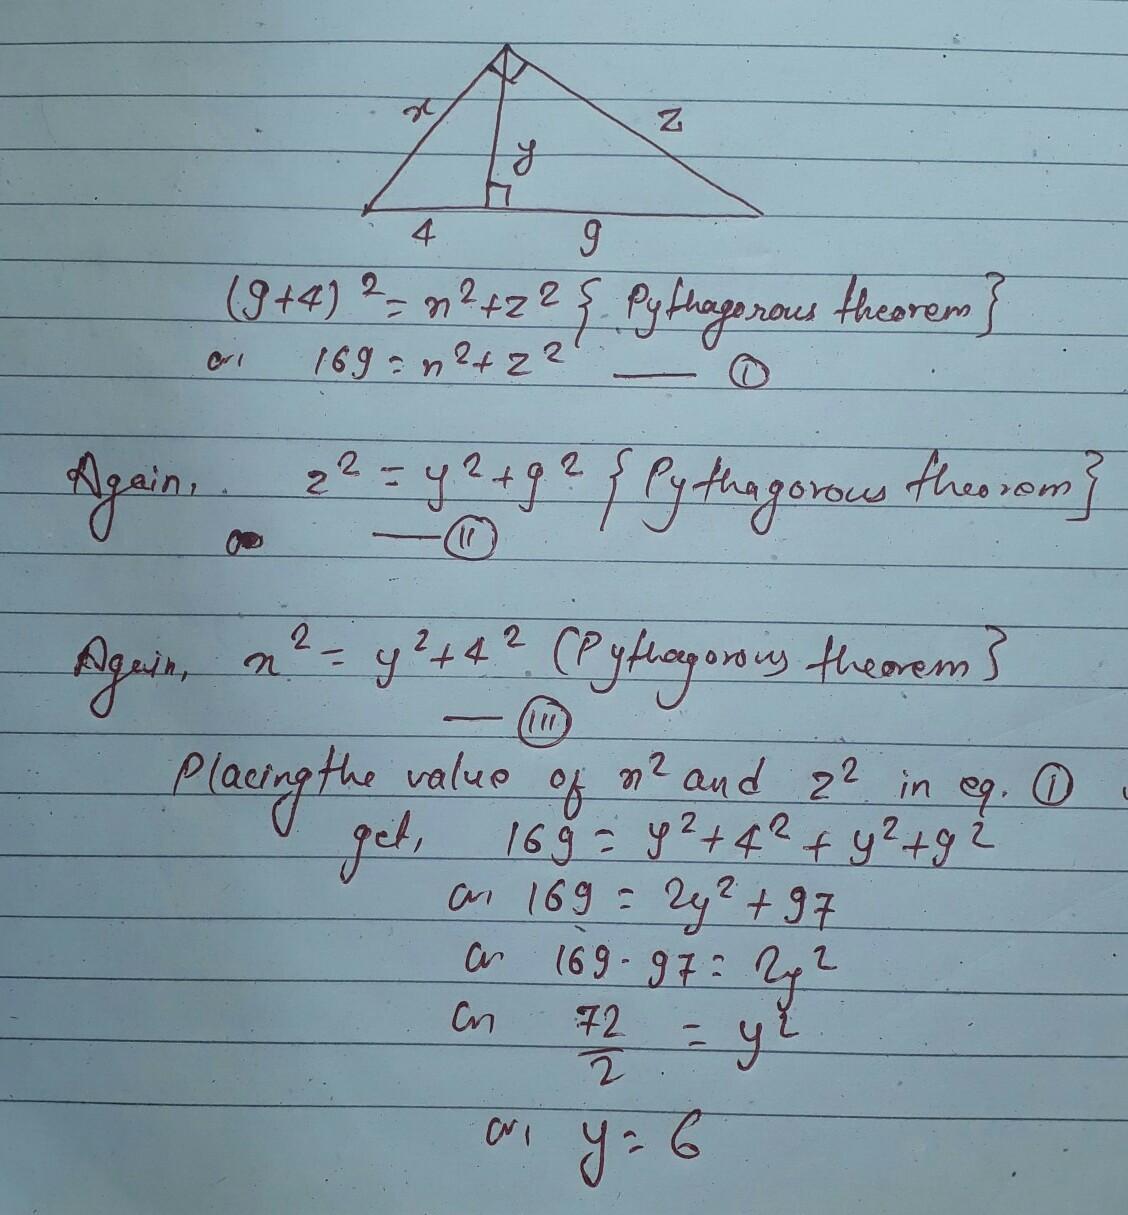 x
z
y
4 9
(9+4)² = x²+z² { Pythagorous theorem}
or, 169 = x²+z² — (I)
Again, z² = y²+9² { Pythagorous theorem}
— (II)
Again, x² = y²+4² (Pythagorous theorem}
— (III)
Placing the value of x² and z² in eq. (I)
get, 169 = y²+4² + y²+9²
or, 169 = 2y² + 97
or 169 - 97 = 2y²
or 72/2 = y²
or, y = 6